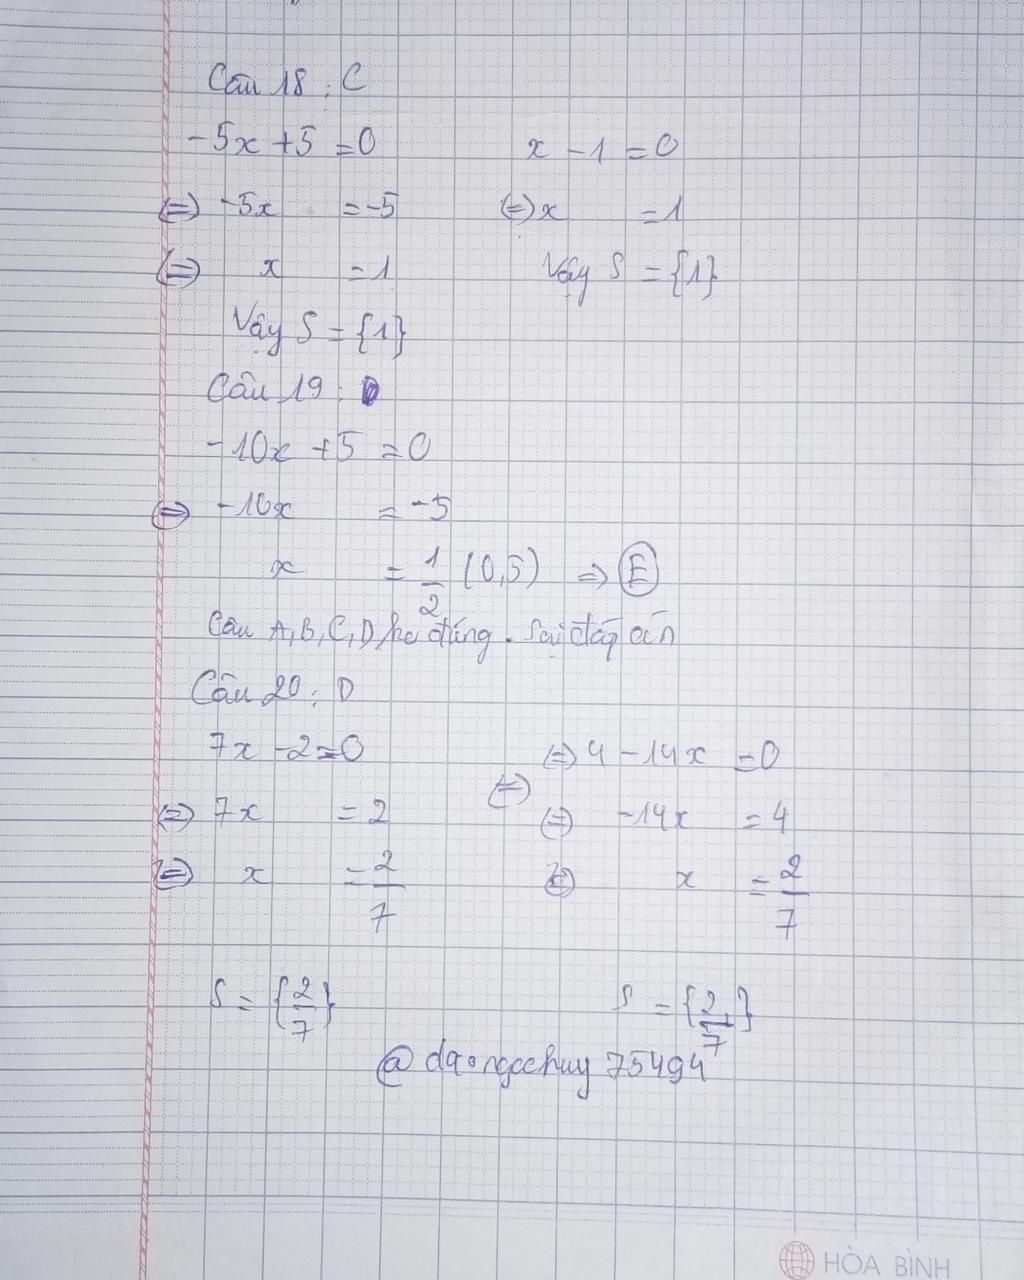 Câu 18 : C
-5x + 5 = 0 x - 1 = 0
⇔ -5x = -5 ⇔ x = 1
⇔ x = 1 Vậy S = {1}
Vậy S = {1}
Câu 19 : D
-10x + 5 = 0
⇔ -10x = -5
x = 1/2 (0,5) ⇒ E
Câu A, B, C, D ko đúng. Sai đáp án
Câu 20 : D
7x - 2 = 0 ⇔ 4 - 14x = 0
⇔ 7x = 2 ⇔ ⇔ -14x = 4
⇔ x = 2/7 ⇔ x = 2/7
S = {2/7} S = {2/7}
@daongochuy75494
HÒA BÌNH